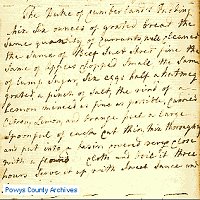 The Duke of Cumberland's Pudding
Six ounces of grated bread the
same quantity of Currants well cleaned
the same of Beef Suet Shred fine the
Same of apples chopped Small the Same
of Lump Sugar, Six eggs half a nutmeg
grated a pinch of Salt, the rind of
Lemon minced as fine as possible,
Citron, Lemon, and orange peel a large
Spoonful of each cut thin, mix thoroughly
and put into a basin covered very close
with a floured cloth and boil it three
hours Serve it up with Sweet Sauce and
Powys County Archives